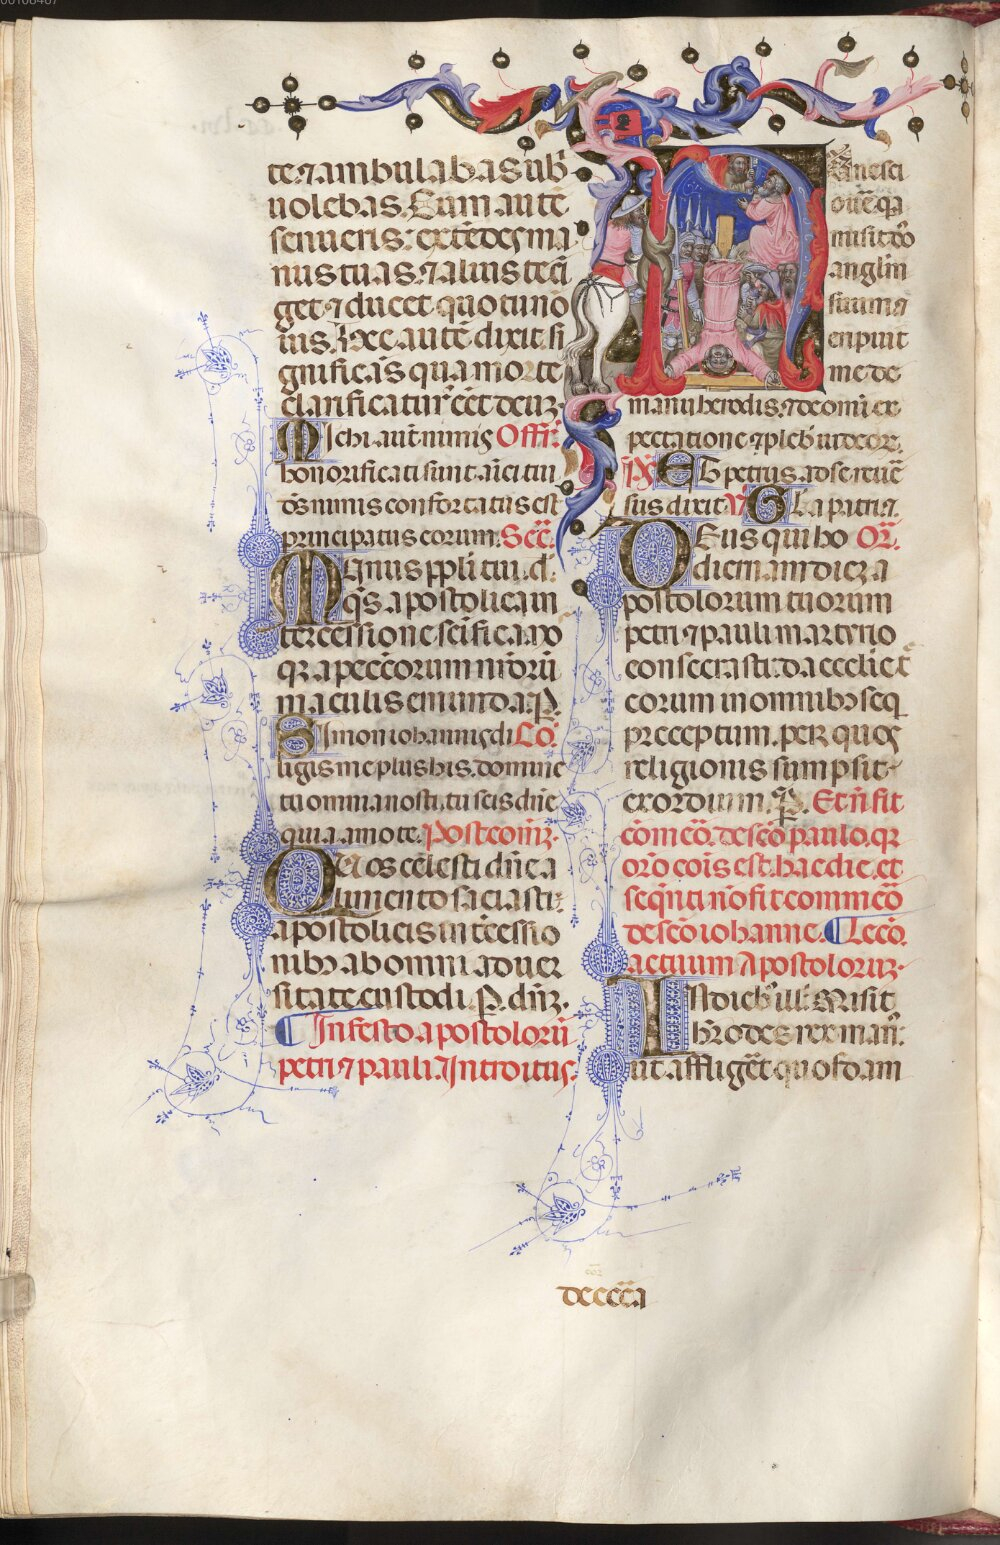 te. ⁊ ambulabas ubi
uolebas. Cum autē
senueris: extēdes ma
nus tuas. ⁊ alius te cī
get ⁊ ducet quo tu nō
uis. Hoc autē dixit. si
gnificās qua morte
clarificatur eēt deuȝ.
Michi aut nimis Offr̄.
honorificati sunt aīci tui
ds nimis confortatus est
principatus eorum. Sec̄.
Munus ppli tui. d.
qs. apostolica in
tercessione scīfica. a no
qȝ a peccōrum nr̄orū
maculis emunda. P.
Simon iohannis di Cō.
ligis me plus his. domine
tu omnia nosti. tu scis dn̄e
quia amo te. Postcoīȝ.
Quos celesti dn̄e a
limento saciasti:
apostolicis intēcessio
nibȝ ab omni aduer
sitate custodi. P. dn̄ȝ.
In festo apostolorū
petri ⁊ pauli. Introitus.
Nunc sci
o uē qa
misit dō
anglm̄
suum ⁊
eripuit
me de
manu herodis. ⁊ de om̄i ex
pectatione plebis iudeoȝ.
Et petrus ad se reuē
sus dixit. Gl̄a patri.
Deus qui ho Or̄.
diernam diez a
postolorum tuorum
petri ⁊ pauli martirio
consecrasti. da ecclie t
eorum in omnibȝ seq
preceptum. per quos
religionis sumpsit
exordium. P. Et n̄ fit
com̄eō. de scō paulo. qȝ
orō cōis est. hac die. et
seq̄nti nō fit commeō
de scō iohanne. Lecō.
actuum Apostoloruȝ.
In dieb ill. Misit
hrodes rex man.
ut affligēt quosdam
dcccca